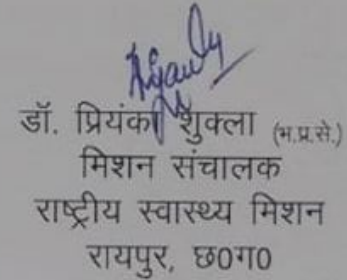 डॉ. प्रियंका शुक्ला (भ.प्र.से.)
मिशन संचालक
राष्ट्रीय स्वास्थ्य मिशन
रायपुर, छ0ग0